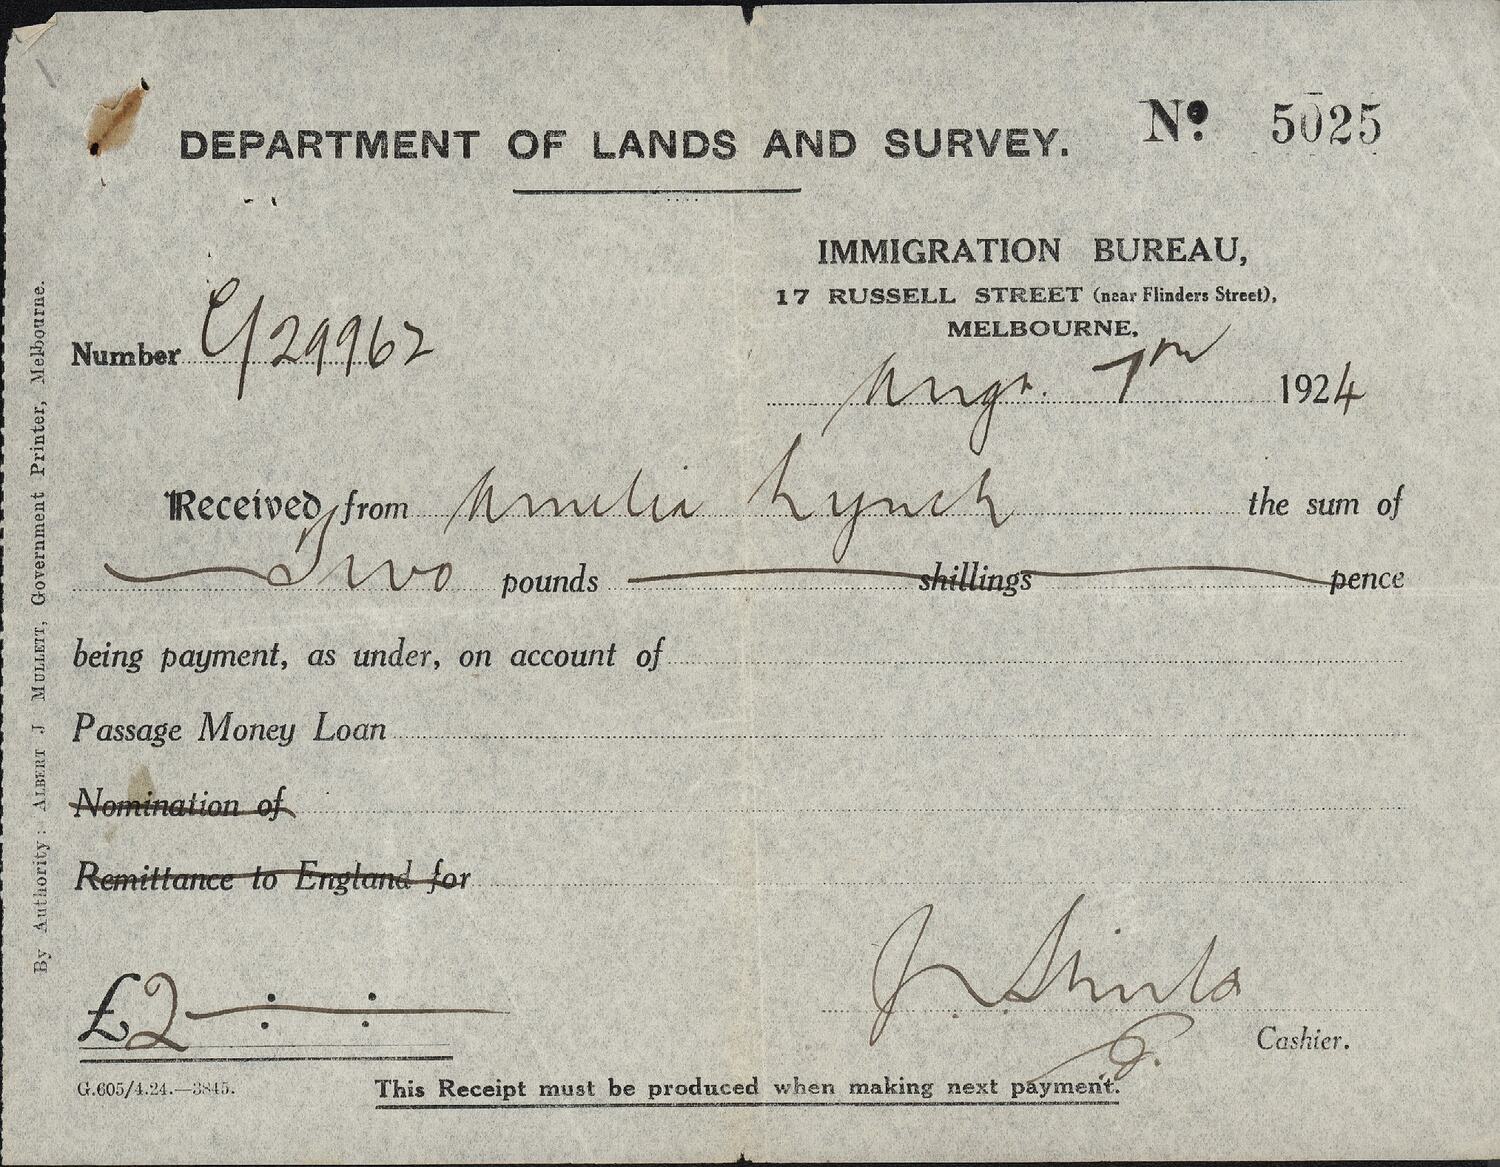 DEPARTMENT OF LANDS AND SURVEY. No. 5025
IMMIGRATION BUREAU,
17 RUSSELL STREET (near Flinders Street),
MELBOURNE.
Number C/29962
Augt. 7th 1924
Received from Amelia Lynch the sum of
Two pounds shillings pence
being payment, as under, on account of
Passage Money Loan
Nomination of
Remittance to England for
£2 : :
Cashier.
G.605/4.24.—3845.
This Receipt must be produced when making next payment.
By Authority: ALBERT J MULLETT, Government Printer, Melbourne.